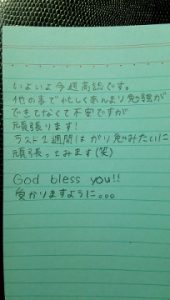 いよいよ今週高認です。
他の事で忙しくあんまり勉強が
できてなくて不安ですが
頑張ります!
ラスト1週間はがり勉みたいに
頑張ってみます(笑)
God bless you!!
受かりますように。。。